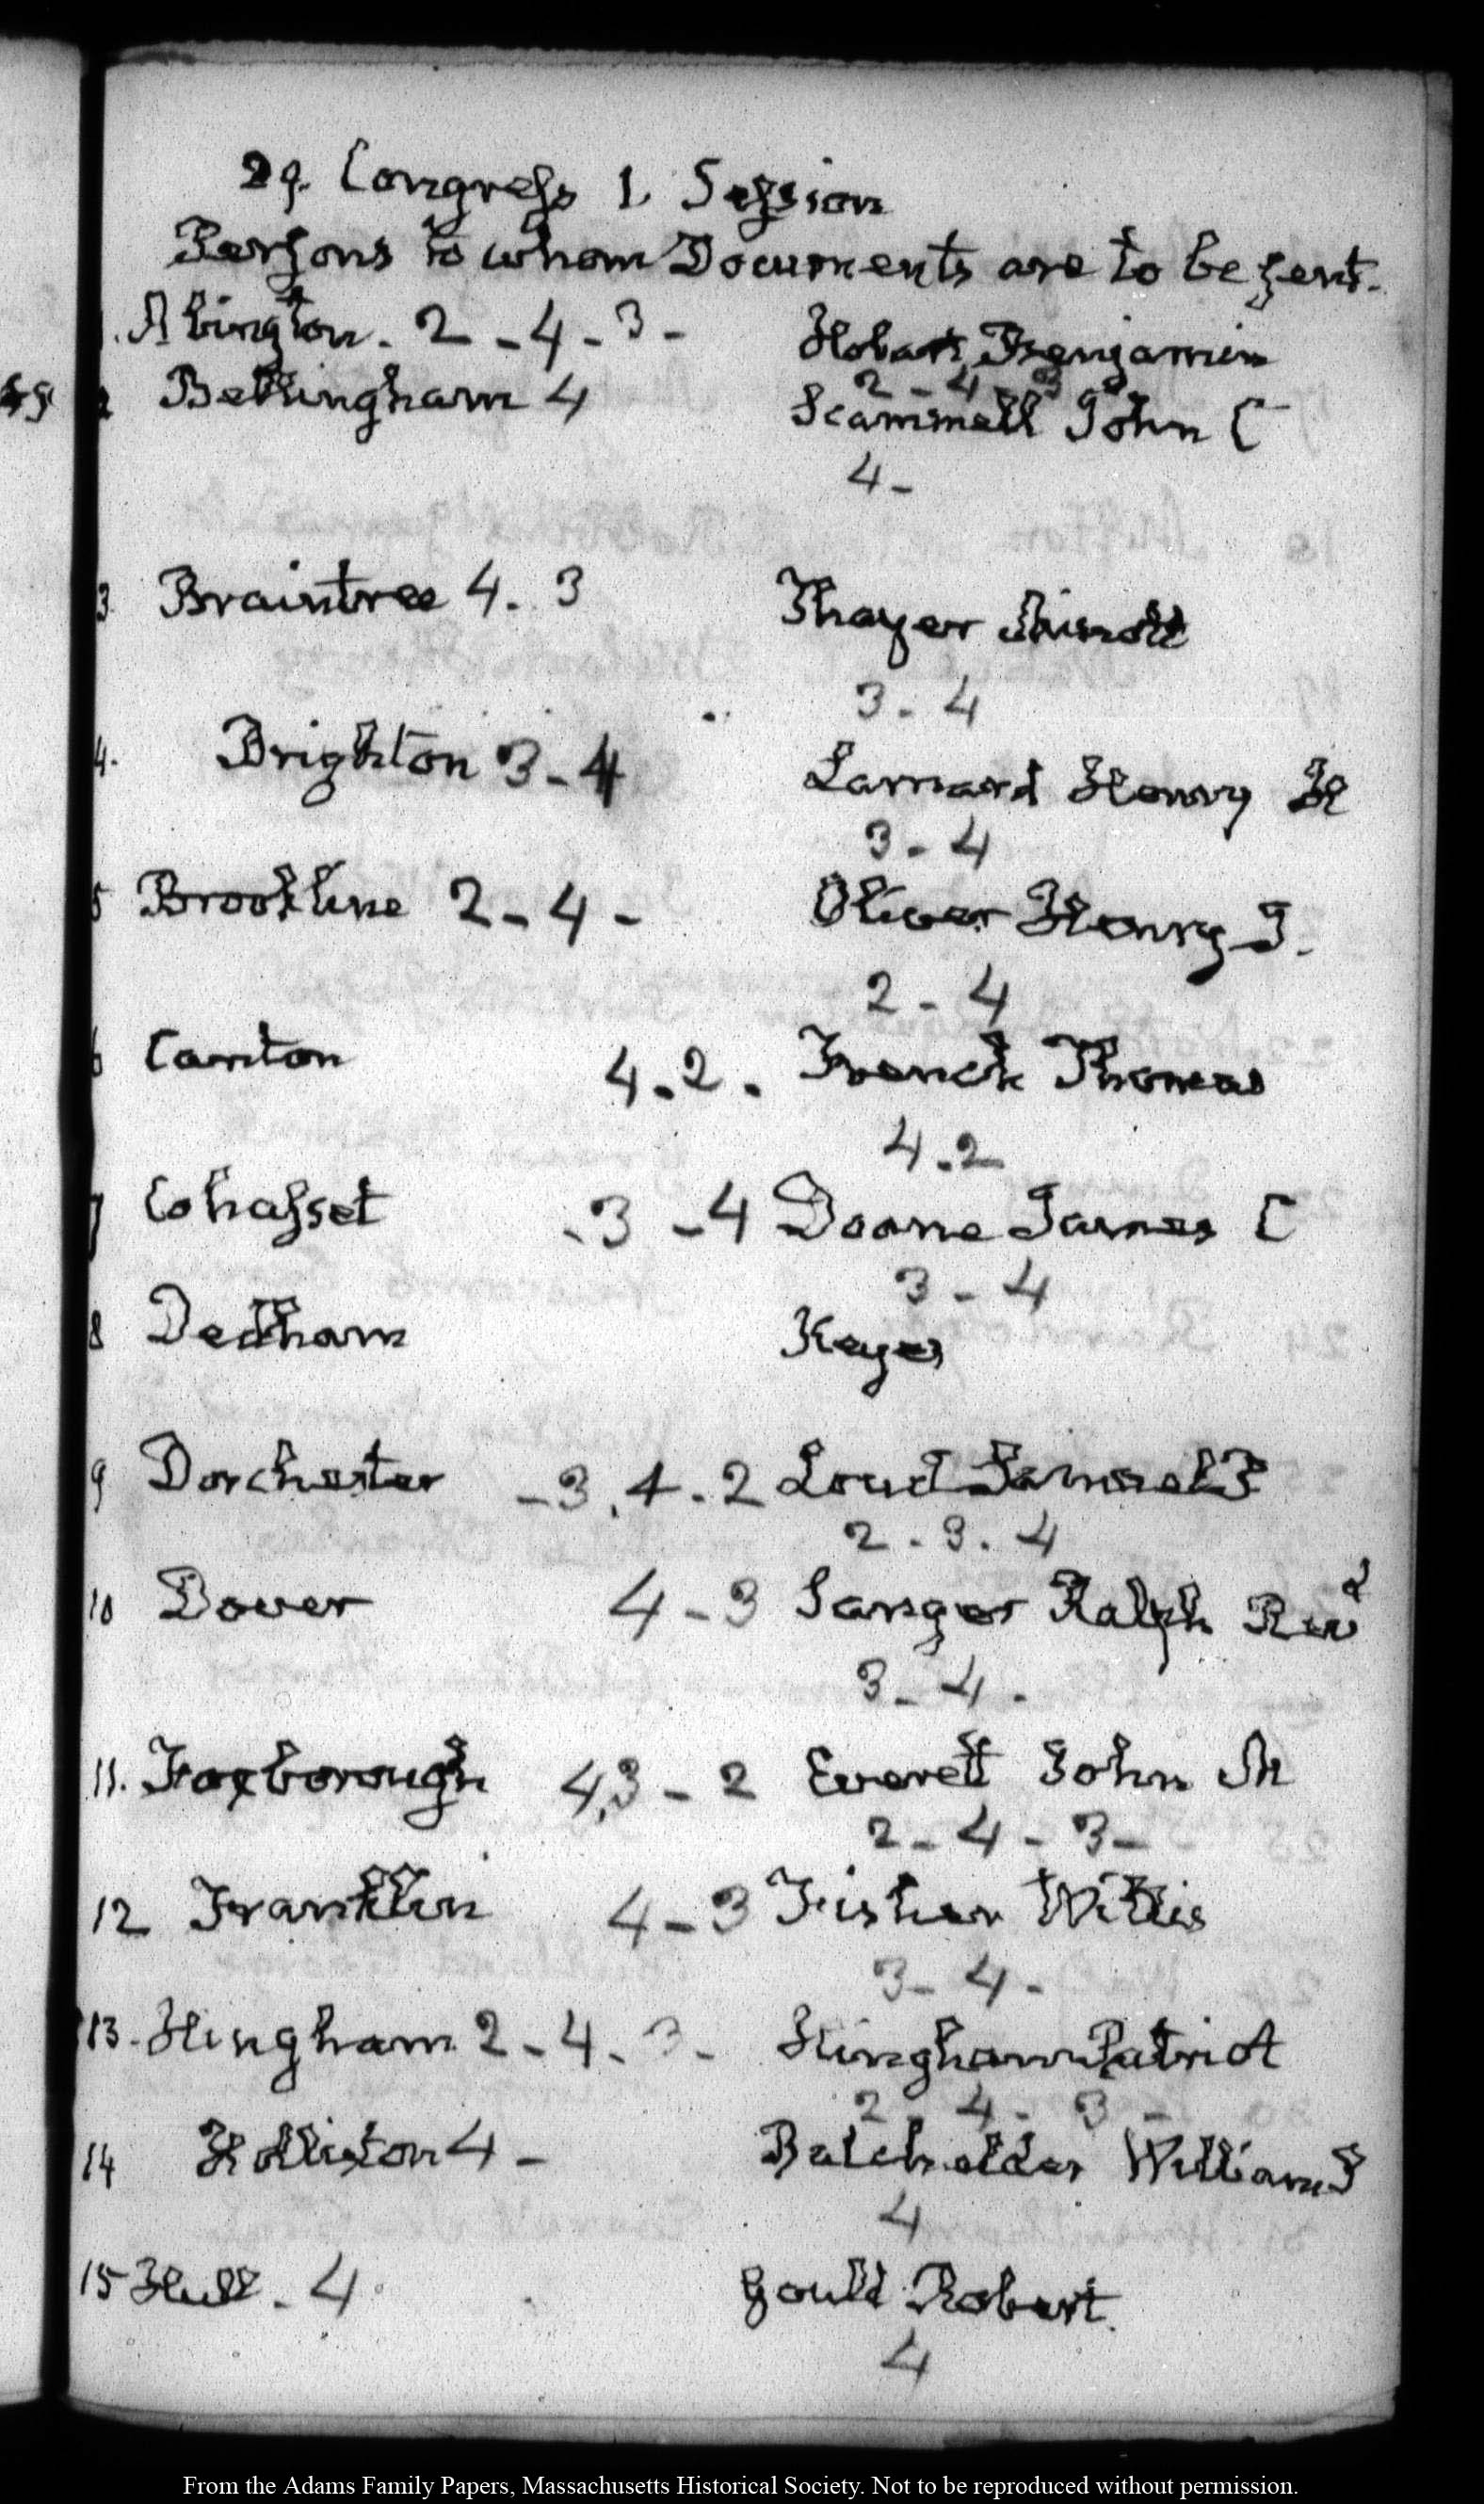 29. Congress 1. Session
Persons to whom Documents are to be sent.
1. Abington. 2 - 4 - 3 - Hobart, Benjamin
2 - 4 - 3
2 Bellingham 4 Scammell John C
4 -
3 Braintree 4. 3 Thayer Minott
3 - 4
4. Brighton 3 - 4 Larnard Henry H
3 - 4
5 Brookline 2 - 4 - Oliver Henry J.
2 - 4
6 Canton 4. 2. French Thomas
4. 2
7 Cohasset - 3 - 4 Doane James C
3 - 4
8 Dedham Keyes
9 Dorchester - 3. 4. 2 Loud Samuel P
2. 3. 4
10 Dover 4 - 3 Sanger Ralph Revd
3 - 4.
11. Foxborough 4, 3 - 2 Everett John M
2 - 4 - 3 -
12 Franklin 4 - 3 Fisher Willis
3 - 4 -
13. Hingham 2 - 4. 3 - Hingham Patriot
2 4. 3 -
14 Holliston 4 - Batchelder William S
4
15 Hull. 4. Gould Robert.
4
From the Adams Family Papers, Massachusetts Historical Society. Not to be reproduced without permission.